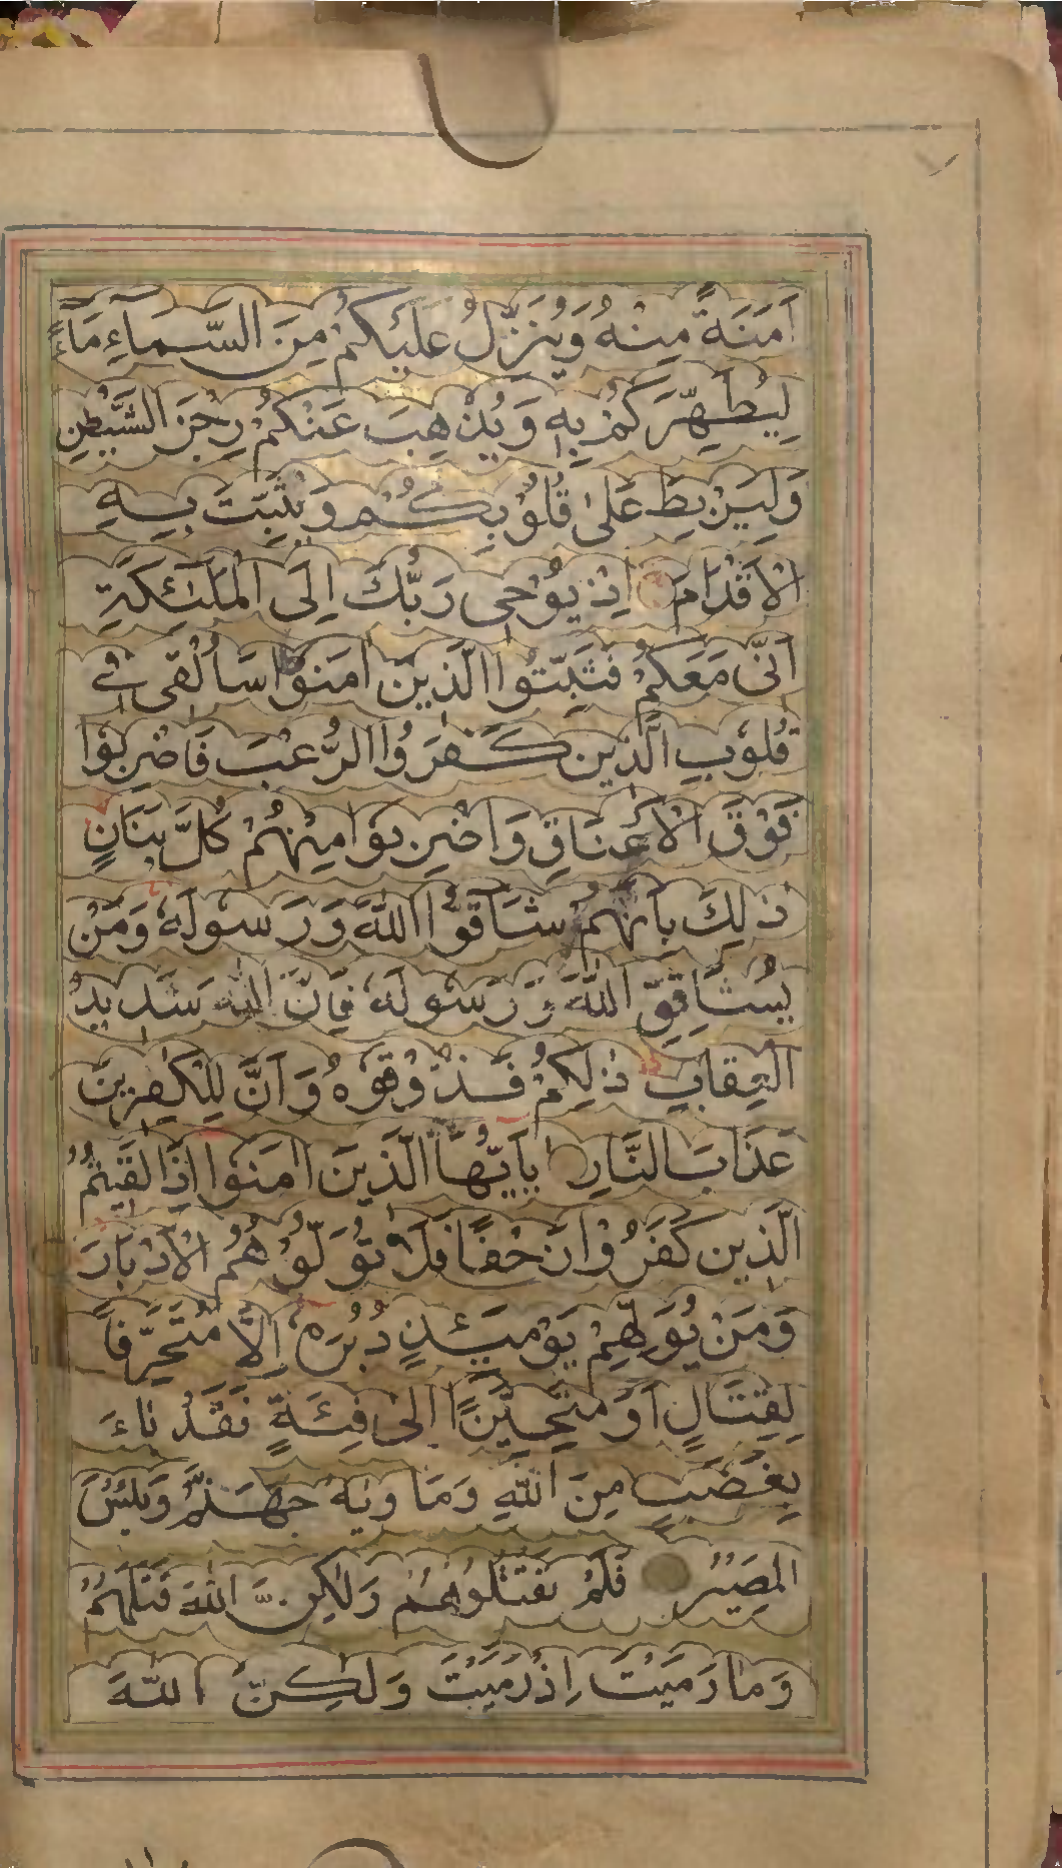 اَمَنَةً مِنْهُ وَيُنَزِّلُ عَلَيْكُمْ مِنَ السَّمَآءِ مَآءً
لِيُطَهِّرَكُمْ بِهٖ وَيُذْهِبَ عَنْكُمْ رِجْزَ الشَّيْطٰنِ
وَلِيَرْبِطَ عَلٰى قُلُوْبِكُمْ وَيُثَبِّتَ بِهِ
الْاَقْدَامَ اِذْ يُوْحٖى رَبُّكَ اِلَى الْمَلٰٓئِكَةِ
اَنّٖى مَعَكُمْ فَثَبِّتُوا الَّذٖينَ اٰمَنُوْا سَاُلْقٖى فٖى
قُلُوْبِ الَّذٖينَ كَفَرُوا الرُّعْبَ فَاضْرِبُوْا
فَوْقَ الْاَعْنَاقِ وَاضْرِبُوْا مِنْهُمْ كُلَّ بَنَانٍ
ذٰلِكَ بِاَنَّهُمْ شَآقُّوا اللّٰهَ وَرَسُوْلَهٗ وَمَنْ
يُشَاقِقِ اللّٰهَ وَرَسُوْلَهٗ فَاِنَّ اللّٰهَ شَدٖيدُ
الْعِقَابِ ذٰلِكُمْ فَذُوْقُوْهُ وَاَنَّ لِلْكٰفِرٖينَ
عَذَابَ النَّارِ يٰٓاَيُّهَا الَّذٖينَ اٰمَنُوْٓا اِذَا لَقٖيتُمُ
الَّذٖينَ كَفَرُوْا زَحْفًا فَلَا تُوَلُّوْهُمُ الْاَدْبَارَ
وَمَنْ يُوَلِّهِمْ يَوْمَئِذٍ دُبُرَهٗ اِلَّا مُتَحَرِّفًا
لِقِتَالٍ اَوْ مُتَحَيِّزًا اِلٰى فِئَةٍ فَقَدْ بَآءَ
بِغَضَبٍ مِنَ اللّٰهِ وَمَاْوٰيهُ جَهَنَّمُ وَبِئْسَ
الْمَصٖيرُ فَلَمْ تَقْتُلُوْهُمْ وَلٰكِنَّ اللّٰهَ قَتَلَهُمْ
وَمَا رَمَيْتَ اِذْ رَمَيْتَ وَلٰكِنَّ اللّٰهَ